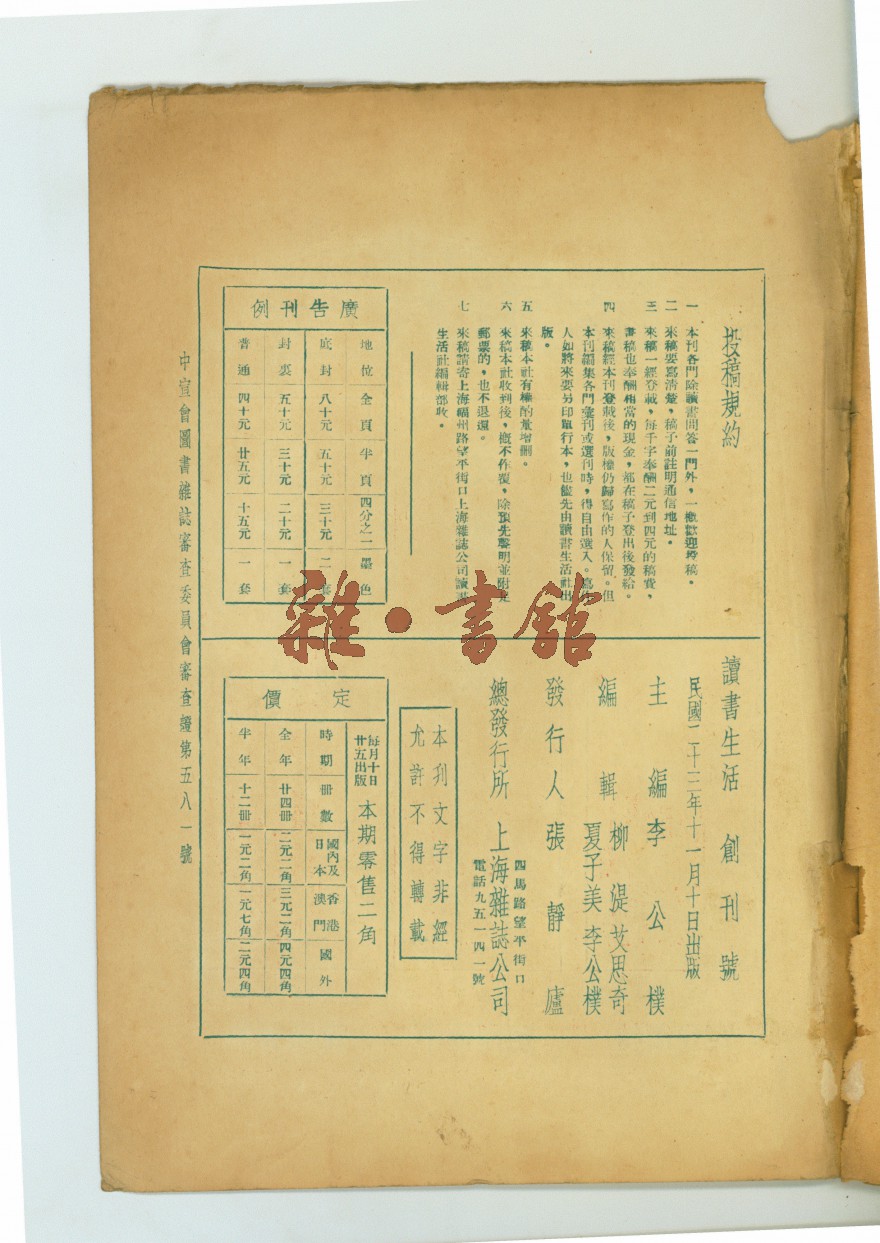 投稿規約
一 本刊各門除讀書問答一門外，一概歡迎投稿。
二 來稿要寫清楚，稿子前註明通信地址。
三 來稿一經登載，每千字奉酬二元到四元的稿費，
書稿也奉酬相當的現金，都在稿子登出後發給。
四 來稿經本刊登載後，版權仍歸寫作的人保留。但
本刊編集各門彙刊或選刊時，得自由選入。寫作
人如將來要另印單行本，也儘先由讀書生活社出
版。
五 來稿本社有權酌量增刪。
六 來稿本社收到後，概不作覆，除預先聲明並附足
郵票的，也不退還。
七 來稿請寄上海福州路望平街口上海雜誌公司讀書
生活社編輯部收。
廣告刊例
地位 全頁 半頁 四分之一 墨色
底封 八十元 五十元 三十元 二套
封裏 五十元 三十元 二十元 一套
普通 四十元 廿五元 十五元 一套
讀書生活 創刊號
民國二十三年十一月十日出版
主編 李公樸
編輯 柳湜 艾思奇
夏子美 李公樸
發行人 張靜廬
總發行所 上海雜誌公司
四馬路望平街口
電話九五一四一號
本刊文字非經
允許不得轉載
定價
每月十日
廿五出版
本期零售二角
時期 冊數 國內及日本 香港澳門 國外
全年 廿四冊 二元二角 三元二角 四元四角
半年 十二冊 一元二角 一元七角 二元四角
中宣會圖書雜誌審查委員會審查證第五八一號
雜·書館